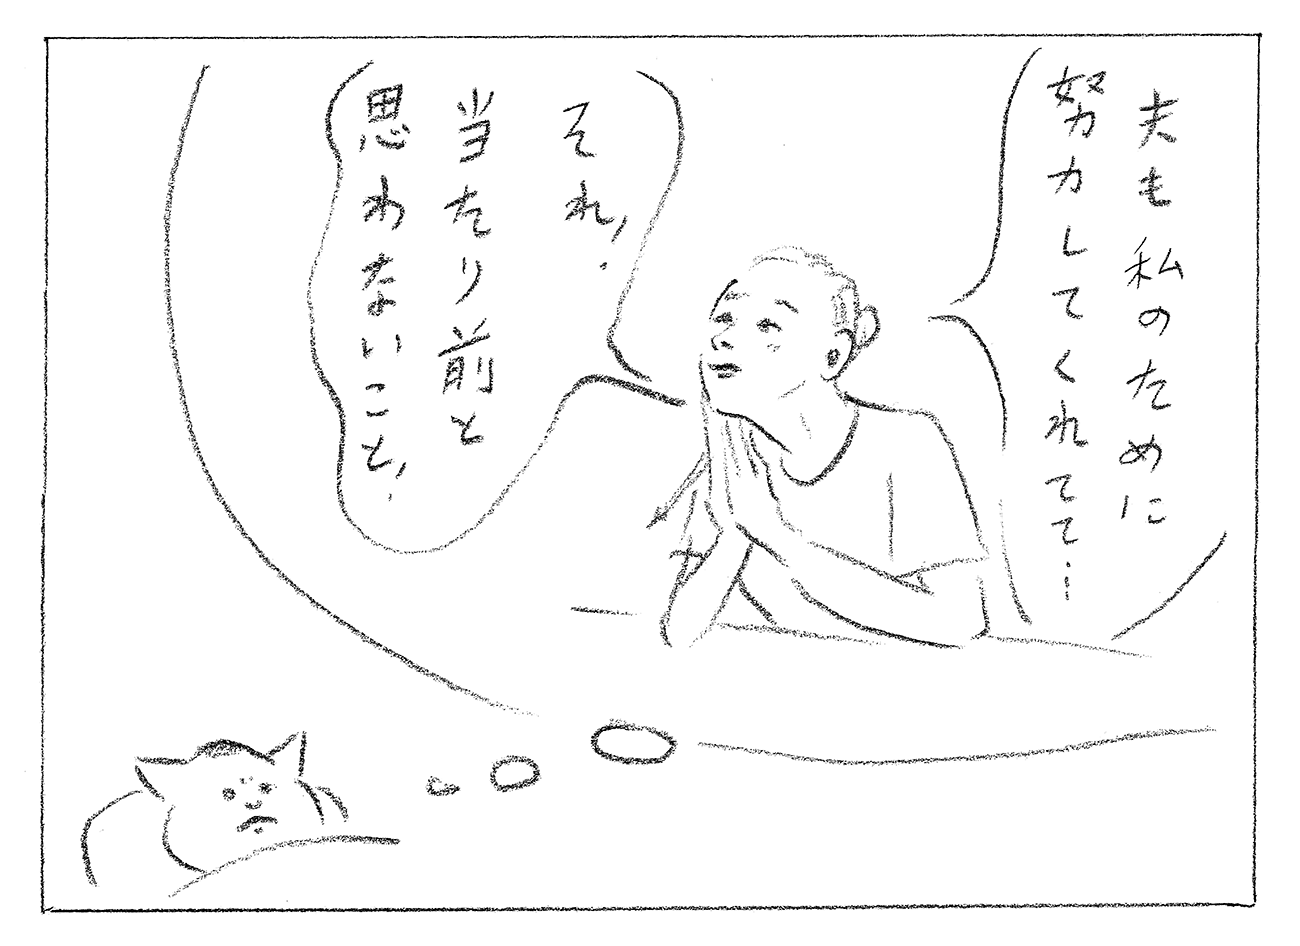 夫も私のために
努力してくれてて…
それ！
当たり前と
思わないこと！